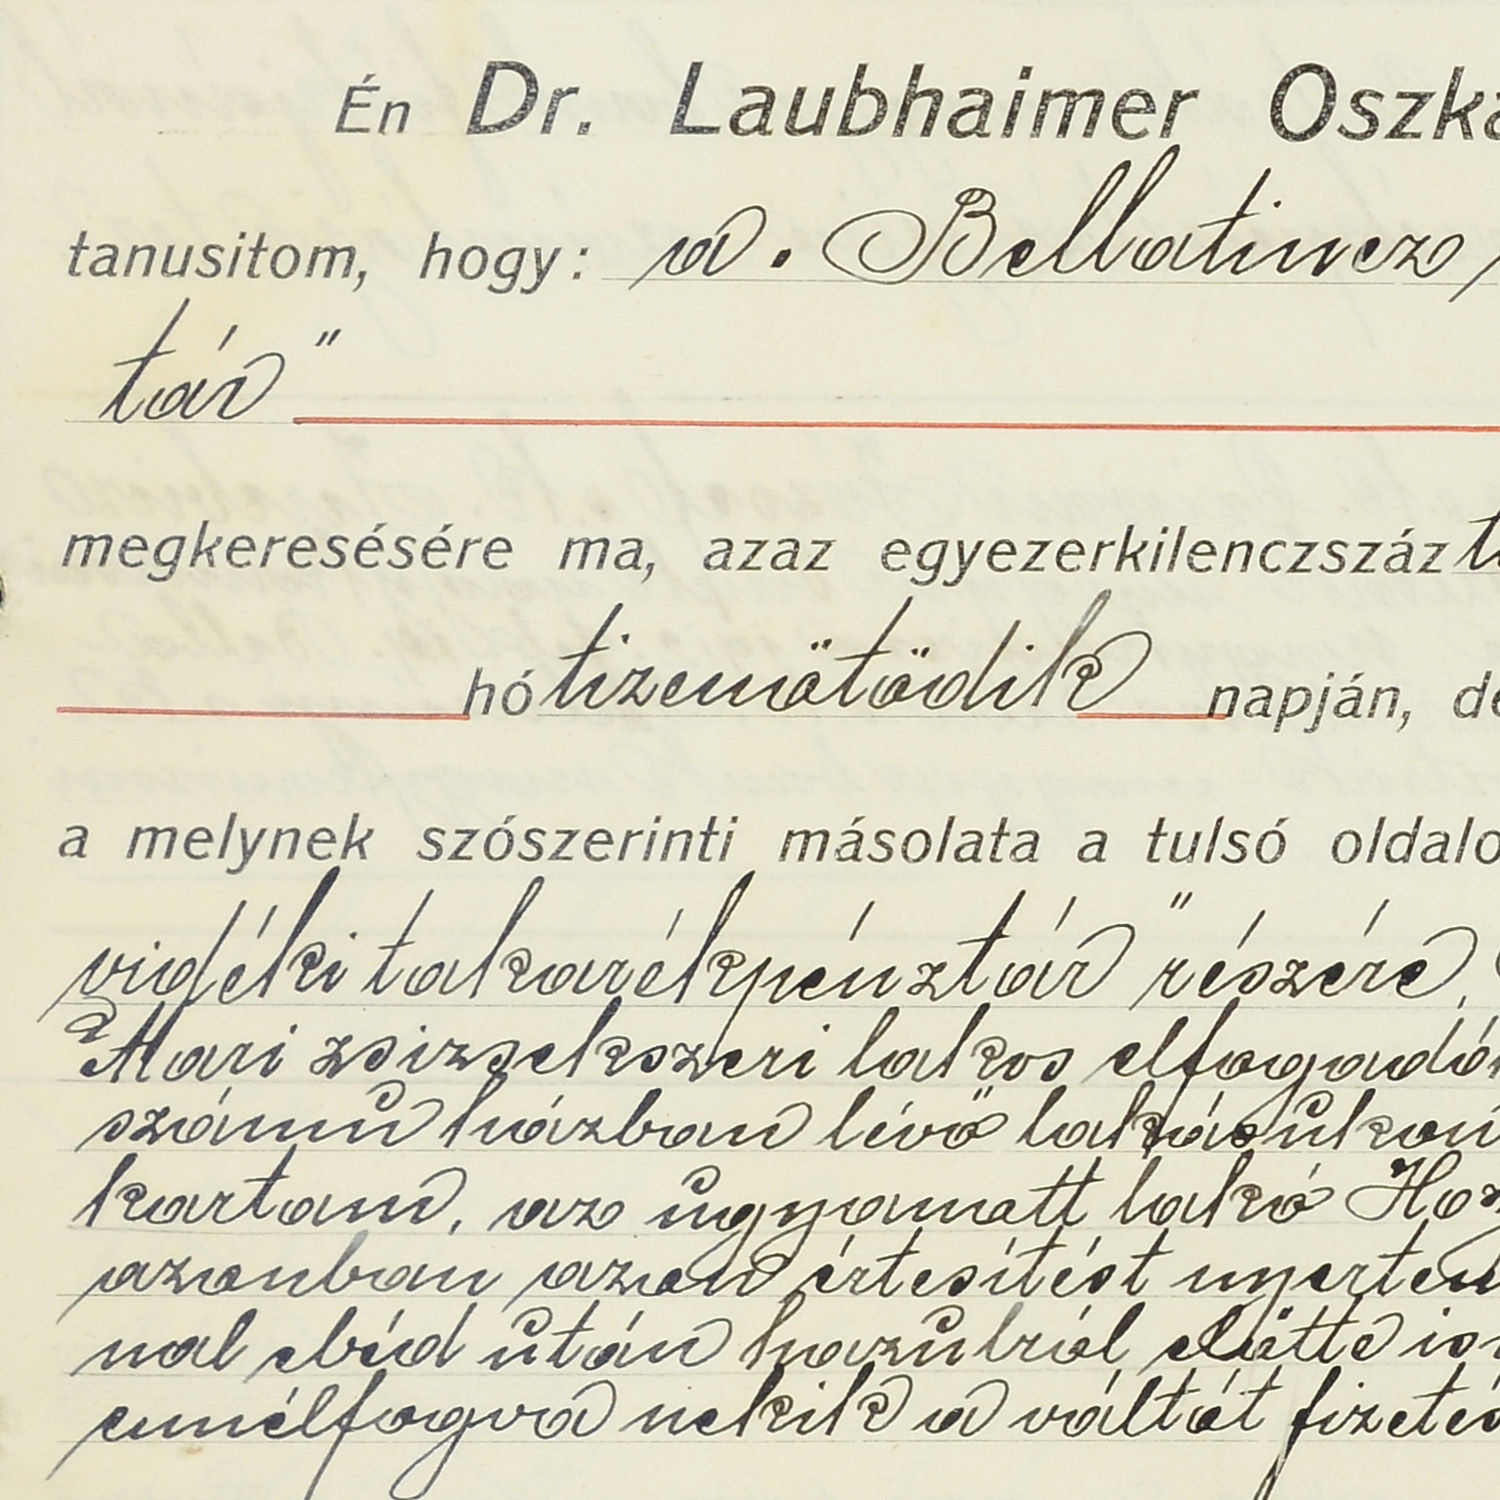 Én Dr. Laubhaimer Oszká
tanusitom, hogy: a. Bellatincz
tár"
megkeresésére ma, azaz egyezerkilenczszáz
hó tizenötödik napján, de
a melynek szószerinti másolata a tulsó oldalo
vidéki takarékpénztár" részére,
Mari zsizsekszeri lakos elfogadó
számu házban lévö lakásukon
kartam, az ugyanott lakó
azonban azon értesítést nyertem
nal ebéd után hazulról elötte
ennélfogva nekik a váltót fizetés